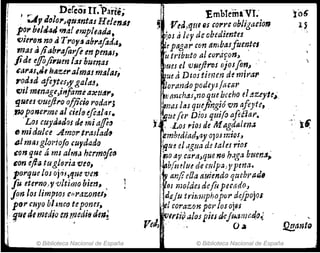 Defeos II. Parte,
Ay dolor, quantas Helenas
por beldad mal empleada,
vieron no a Troya abrasada,
mas a si abrasarse en penas,
si de esso siruen las buenas
caras, de hazer almas malas,
rodad afeytes, y galas,
vil menage, infame axuar,
ques vuestro officio rodar;
no ponerme al cielo escalas.
Los cuydados de mi asseo
o mi dulce Amor traslado
al mas glorioso cuydado
con que à mi alma hermoseo
con esta tu gloria veo,
porque los ojos, que ven
su eterno, y vltimo bien,
son los limpios corazones,
por cuyo blanco te pones,
que de medio en medio den.
Ved,
Emblema VI.
106
Ved, que os corre obligacion
15
ojos à ley de obedientes
de pagar con ambas fuentes
su tributo al corazon,
pues el vuestros ojos son,
que à Dios tienen de mirar
llorando podeys sacar
manchas, no que hecho el azeyte,
mas las que fingiò vn afeyte,
que ser Dios quiso afectar.
Los rios de Magdalena
16
embidiad, ay ojos mios,
que el agua de tales rios
no ay cara, que no haga buena,
absuelue de culpa, y pena,
y ansi ella auiendo quebrado
los moldes de su pecado,
de su triumpho por despojos
el corazon por los ojos
vertiò a los pies de su amado;
O 2
Quanto
© Biblioteca Nacional de España
© Biblioteca Nacional de España